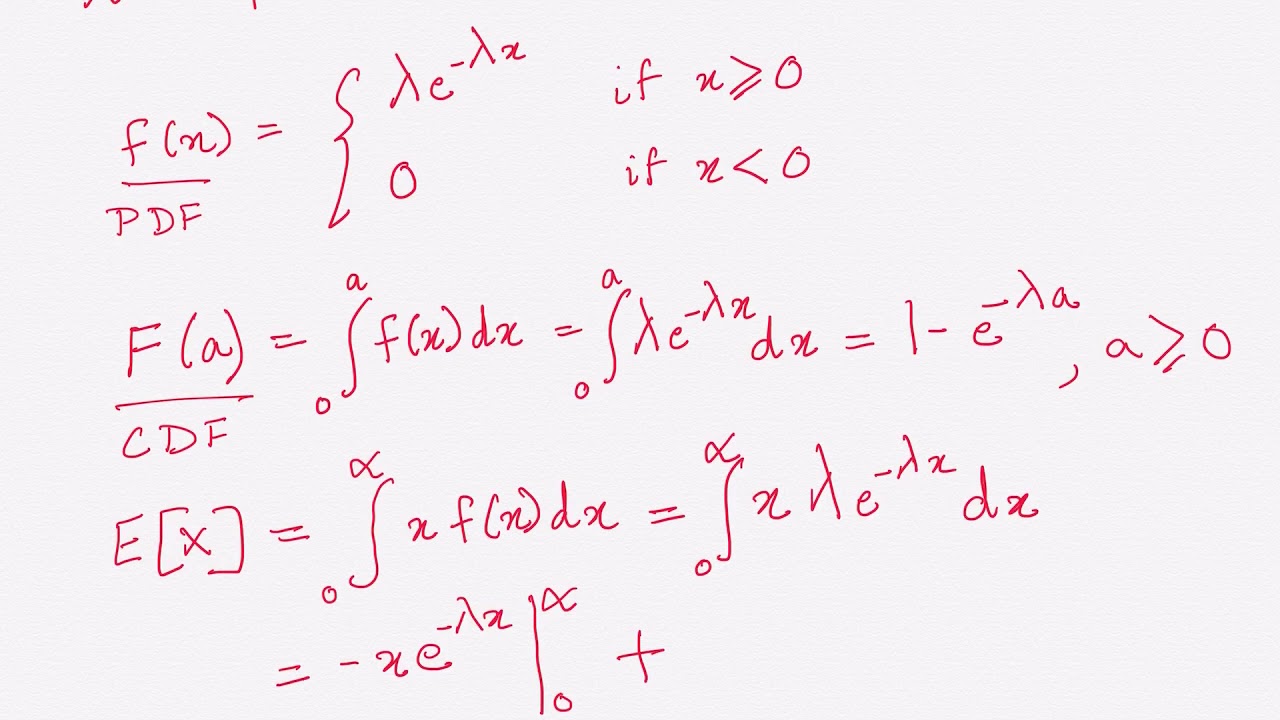 f(x) = { λe^{-λx} if x ⩾ 0
0 if x < 0
PDF
F(a) = ∫_0^a f(x)dx = ∫_0^a λe^{-λx}dx = 1 - e^{-λa}, a ⩾ 0
CDF
E[X] = ∫_0^∝ x f(x)dx = ∫_0^∝ x λe^{-λx} dx
= -xe^{-λx} |_0^∝ +